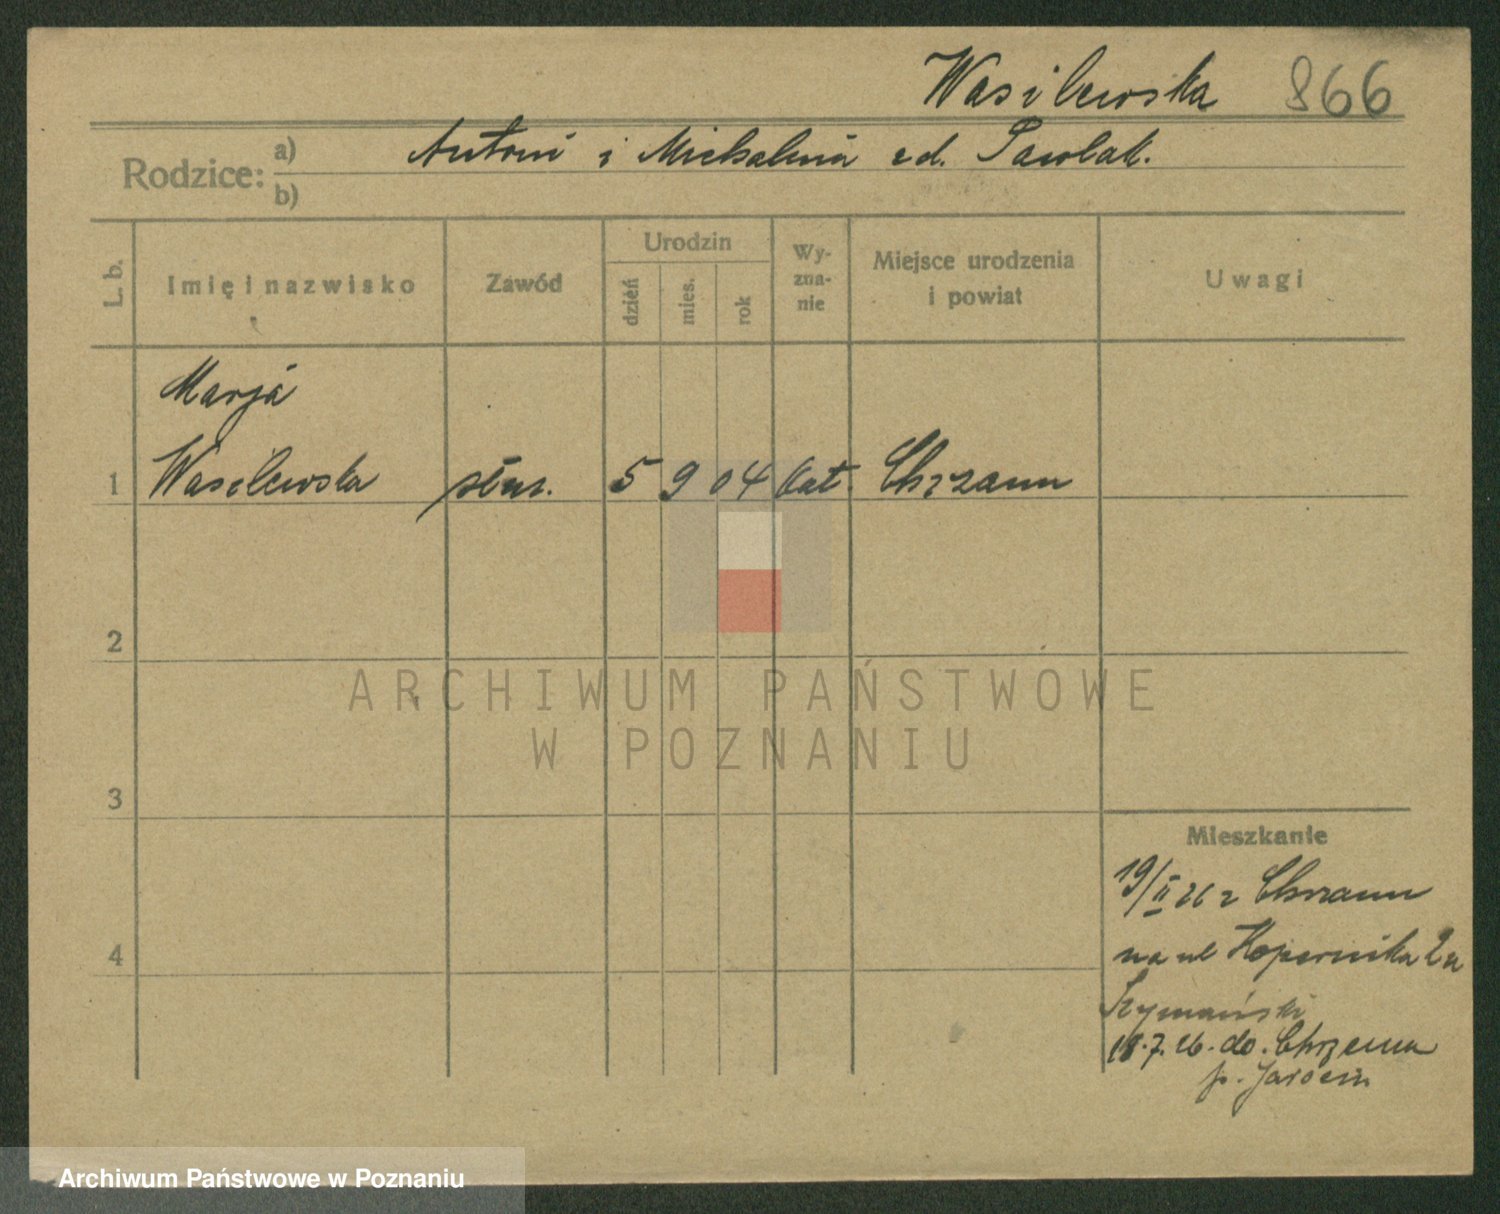 Wasilewska 866
Rodzice: a) Antoni i Michalina zd. Pawlak.
b)
L. b. Imię i nazwisko Zawód Urodzin dzień mies. rok Wy-zna-nie Miejsce urodzenia i powiat Uwagi
Marja
1 Wasilewska służ. 5 9 04 kat. Chrzanu
2
ARCHIWUM PAŃSTWOWE
W POZNANIU
3
Mieszkanie
19/II 26 z Chrzanu
4
na ul Kopernika 2 u
Szymański
18.7.26. do. Chrzanu
p. Jarocin
Archiwum Państwowe w Poznaniu